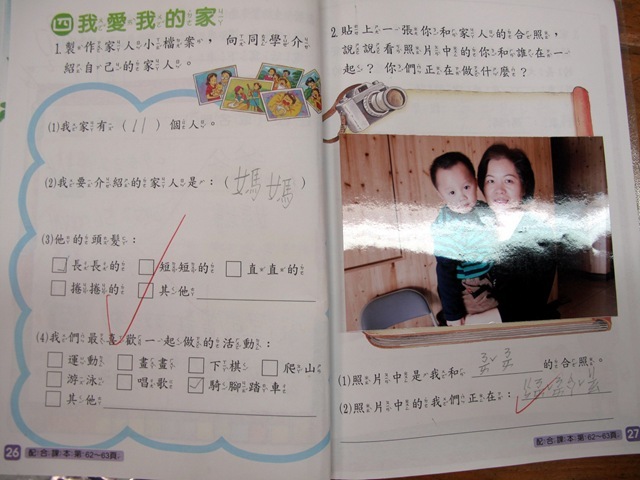 四 我愛我的家
1.製作家人小檔案，向同學介
紹自己的家人。
(1)我家有（11）個人。
(2)我要介紹的家人是：（媽媽）
(3)他的頭髮：
長長的 短短的 直直的
捲捲的 其他
(4)我們最喜歡一起做的活動：
運動 畫畫 下棋 爬山
游泳 唱歌 騎腳踏車
其他
26 配合課本第62～63頁。
2.貼上一張你和家人的合照，
說說看照片中的你和誰在一
起？你們正在做什麼？
(1)照片中是我和 的合照。
(2)照片中的我們正在：
配合課本第62～63頁。 27